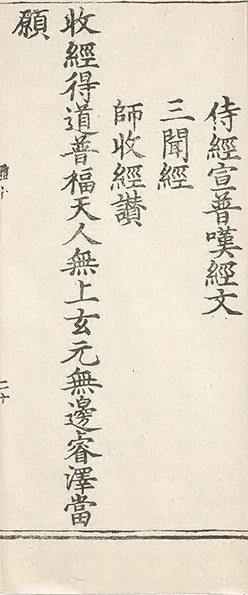 侍經宣普嘆經文
三聞經
師收經讃
收經得道普福天人無上玄元無邊睿澤當
願